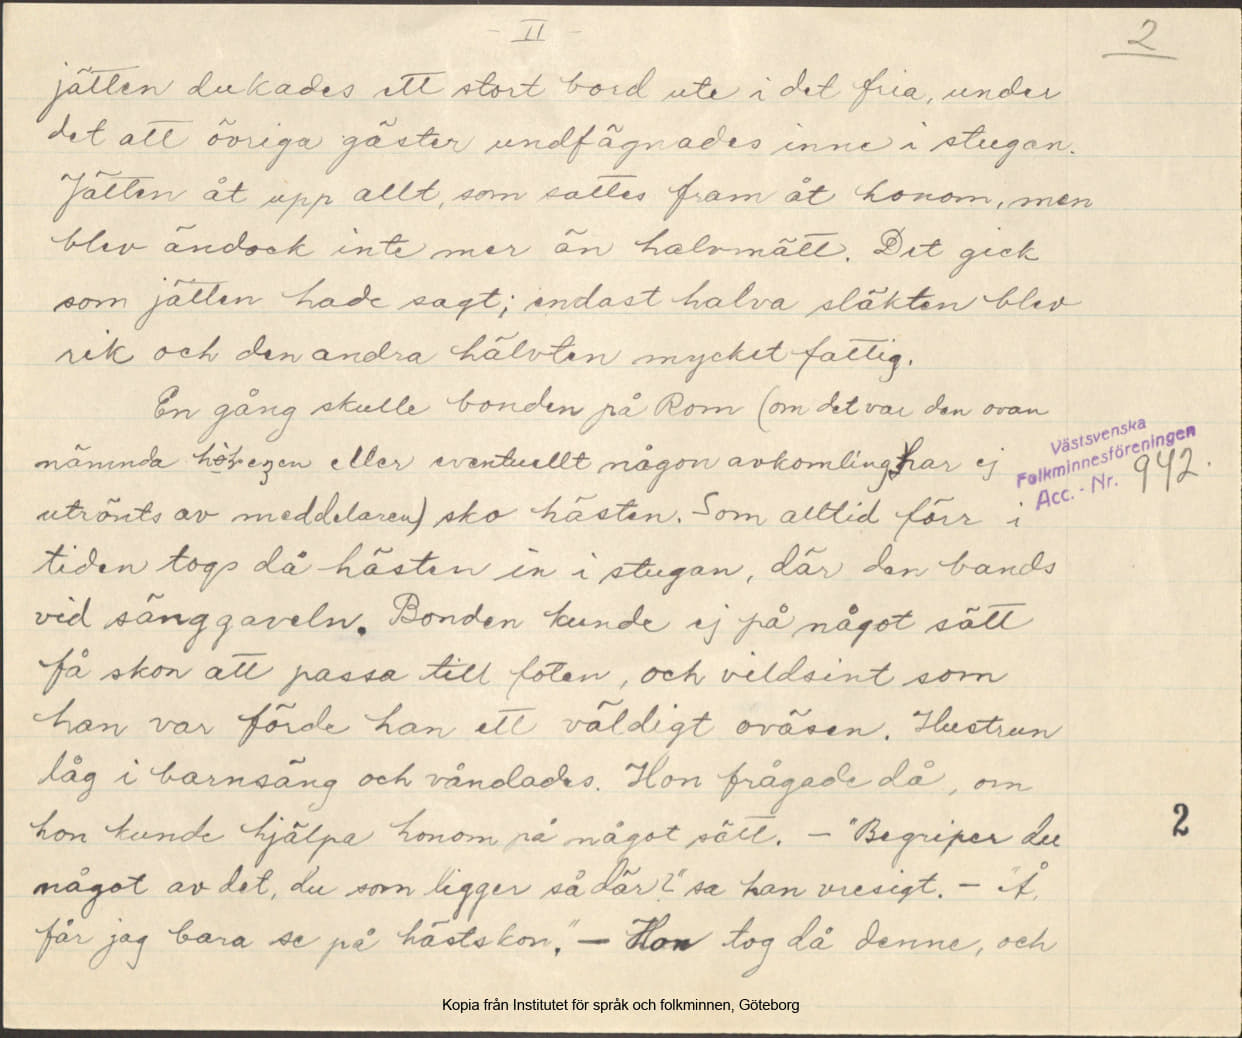 - II -
2
jätten dukades ett stort bord ute i det fria, under
det att övriga gäster undfägnades inne i stugan.
Jätten åt upp allt, som sattes fram åt honom, men
blev ändock inte mer än halvmätt. Det gick
som jätten hade sagt; endast halva släkten blev
rik och den andra hälvten mycket fattig.
En gång skulle bonden på Rom (om det var den ovan
nämnda eller eventuellt någon avkomling har ej
utrönts av meddelaren) sko hästen. Som alltid förr i
tiden togs då hästen in i stugan, där den bands
vid sänggaveln. Bonden kunde ej på något sätt
få skon att passa till foten, och vildsint som
han var förde han ett väldigt oväsen. Hustrun
låg i barnsäng och våndades. Hon frågade då, om
hon kunde hjälpa honom på något sätt. - "Begriper du
något av det, du som ligger så där?" sa han vresigt. - "Å,
får jag bara se på hästskon." - Hon tog då denne, och
Västsvenska
Folkminnesföreningen
Acc. - Nr. 942.
2
Kopia från Institutet för språk och folkminnen, Göteborg